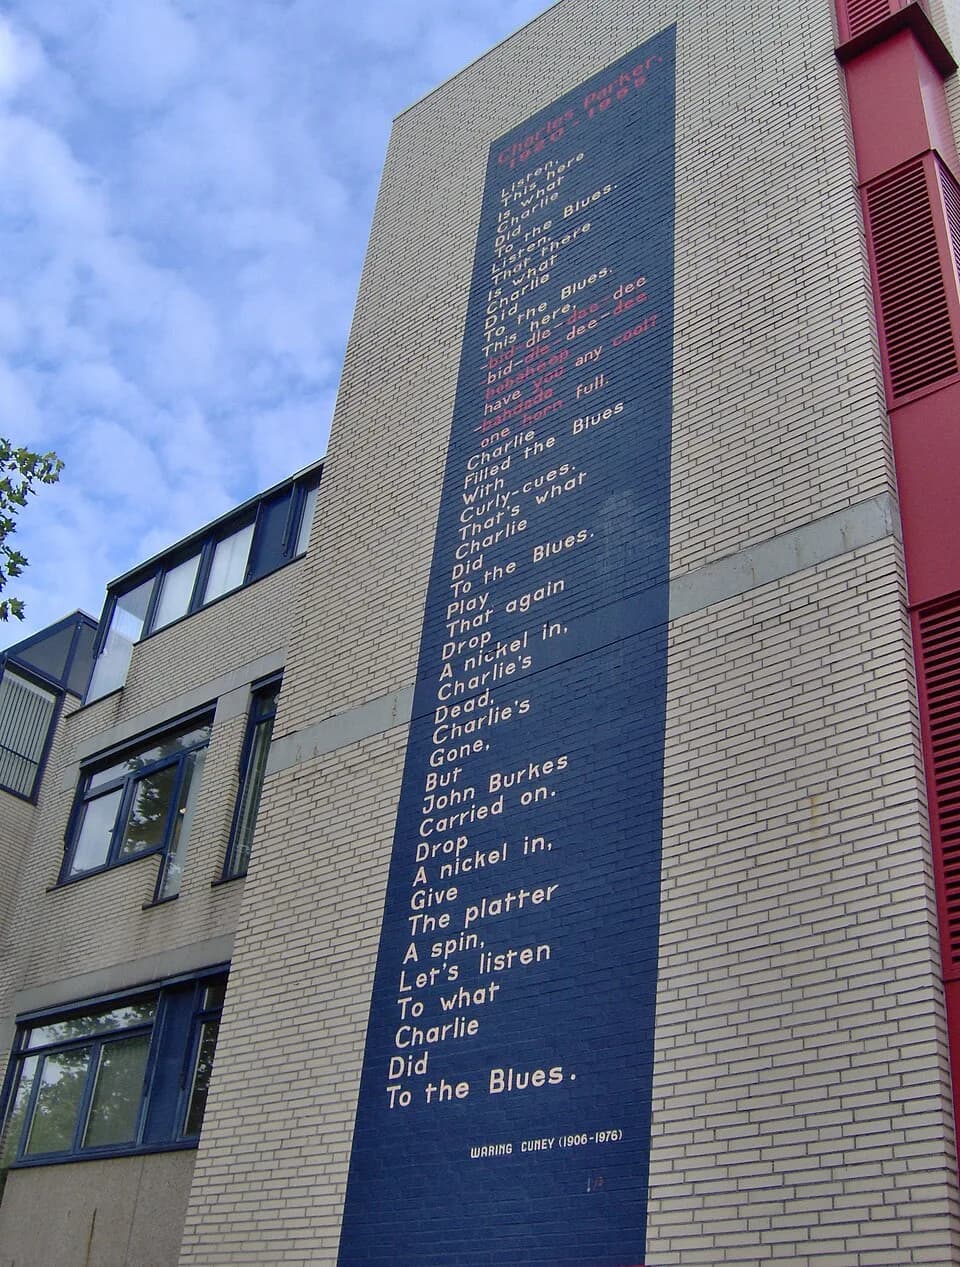 Charles Parker,
1920-1955
Listen,
This here
Is what
Charlie
Did
To the Blues.
Listen,
That there
Is what
Charlie
Did
To the Blues.
This here,
-bid-dle-dee-dee
bid-dle dee-dee
bobsheep
have you any cool?
-bahdada
one horn full.
Charlie
Filled the Blues
With
Curly-cues.
That's what
Charlie
Did
To the Blues.
Play
That again
Drop
A nickel in,
Charlie's
Dead,
Charlie's
Gone,
But
John Burkes
Carried on.
Drop
A nickel in,
Give
The platter
A spin,
Let's listen
To what
Charlie
Did
To the Blues.
WARING CUNEY (1906-1976)